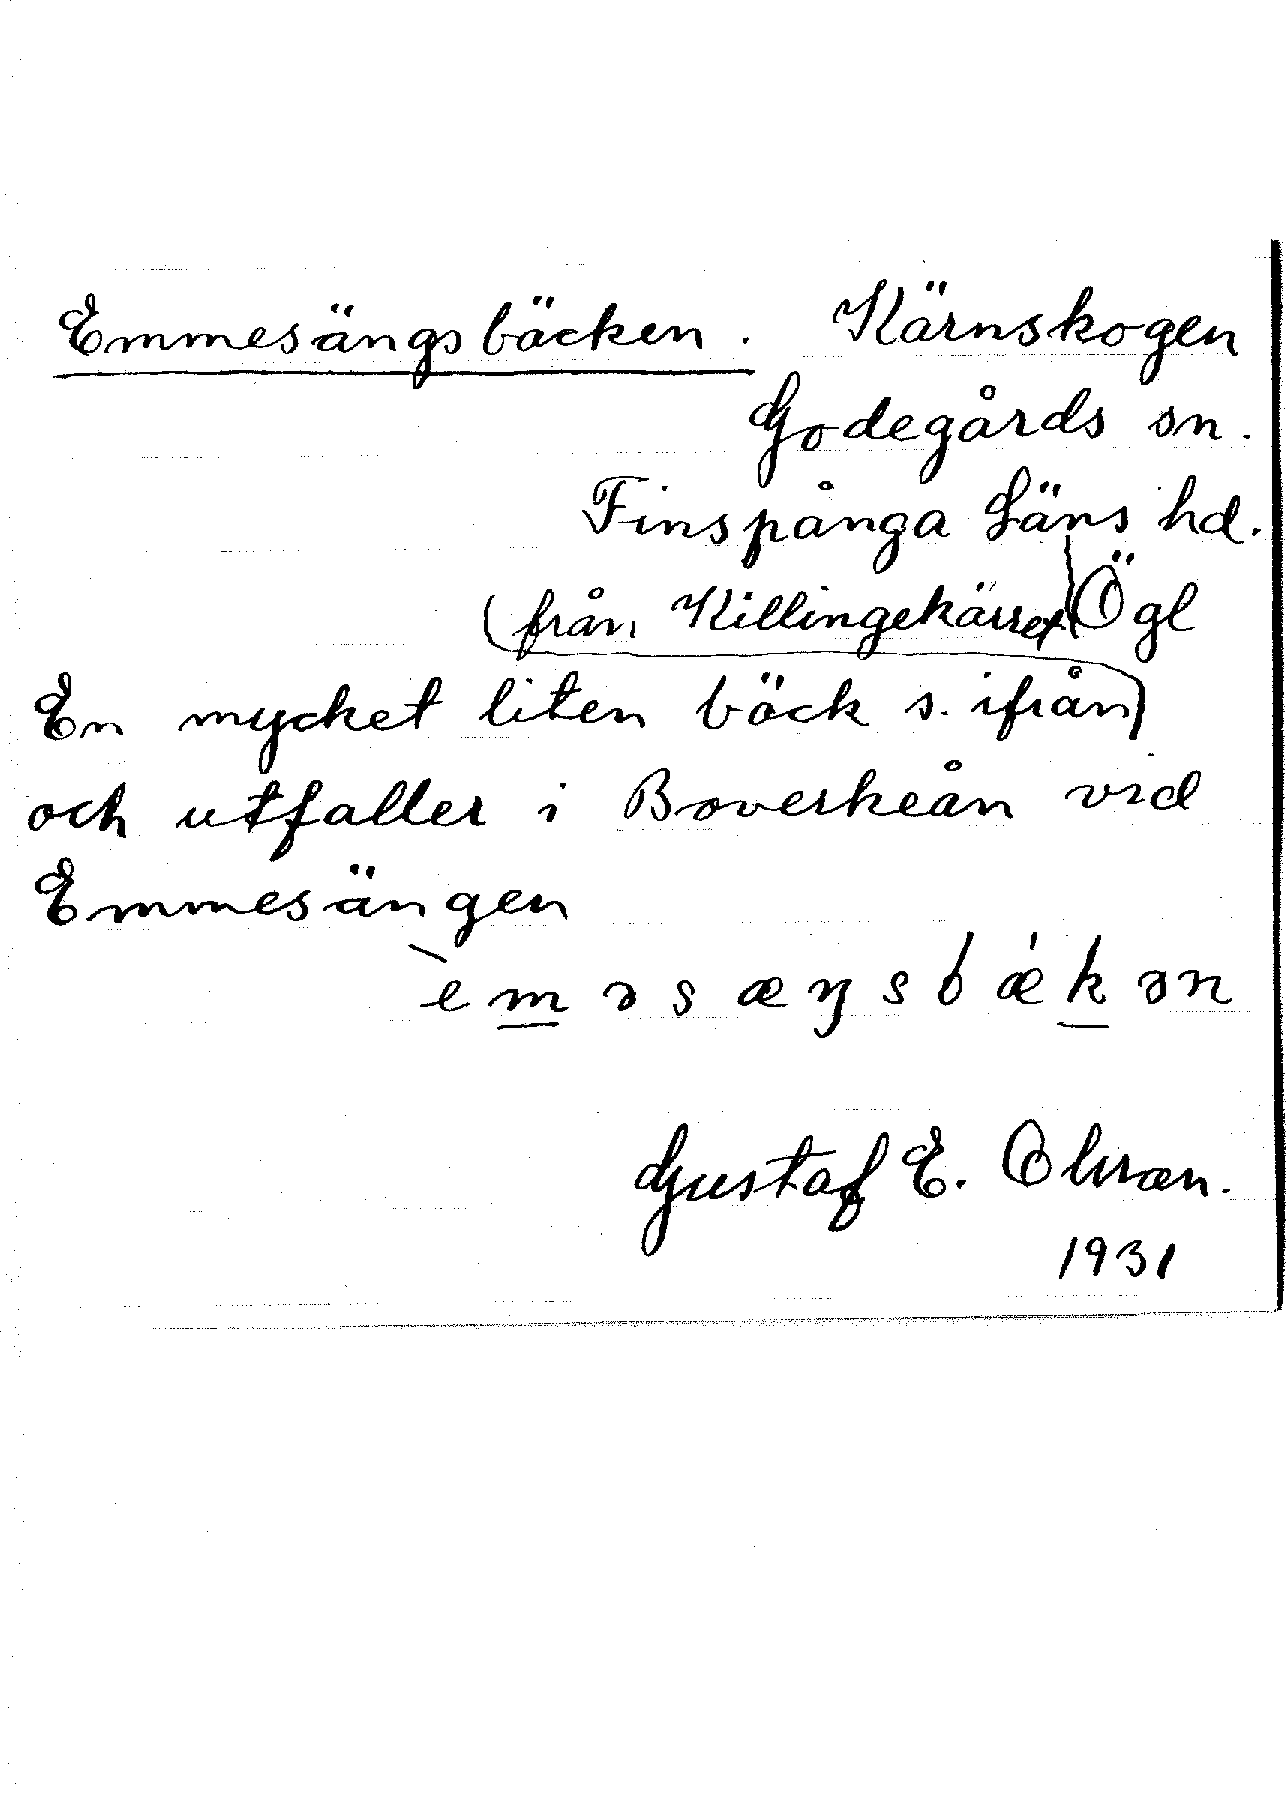 Emmesängsbäcken. Kärnskogen
Godegårds sn.
Finspånga Läns hd.
(från Killingekärret) Ögl
En mycket liten bäck s. ifrån)
och utfaller i Boverkeån vid
Emmesängen
èməsæŋsbækən
Gustaf E.
1931